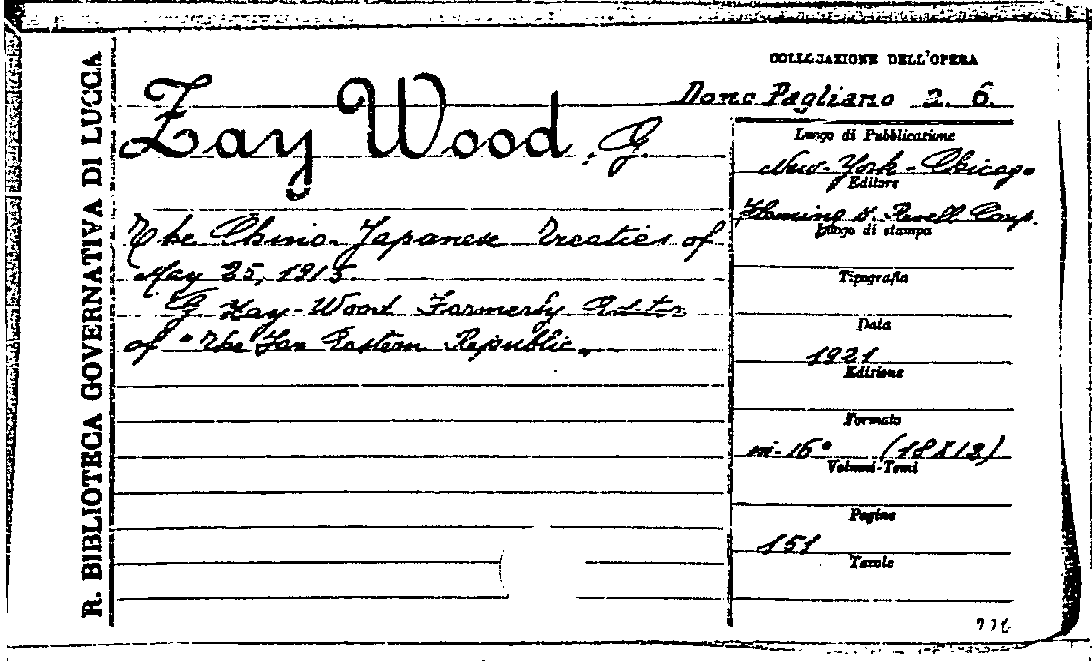 R. BIBLIOTECA GOVERNATIVA DI LUCCA
COLLOCAZIONE DELL'OPERA
Dono Pagliano 2. 6.
Zay Wood, G.
The Chino-Japanese Treaties of
May 25, 1915.
G Zay-Wood Formerly Editor
of "The Far Eastern Republic"
Luogo di Pubblicazione
New-York-Chicago
Editore
Fleming H. Revell Comp.
Luogo di stampa
Tipografia
Data
1921
Edizione
Formato
in-16° (18X12)
Volumi-Tomi
Pagine
151
Tavole